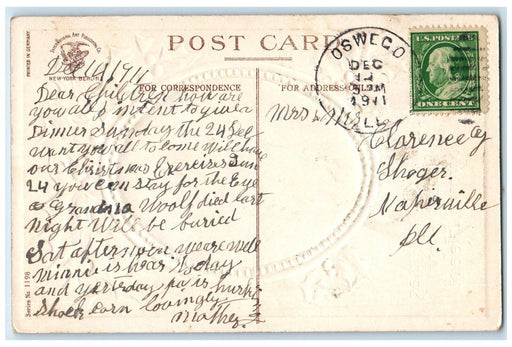 POST CARD
PRINTED IN GERMANY
NEW YORK BERLIN
Series No. 1198
FOR CORRESPONDENCE
FOR ADDRESS ONLY
OSWEGO
DEC
1911
ILL
U.S. POSTAGE
ONE CENT
Dec 1911
Dear Children how are
you all I intent to give a
Dinner Sunday the 24 Dec
want you all to come Will have
our Christmas Exercises Sun
24 you can stay for the Eve
as Grandma Woolf died last
night Will be buried
Sat afternoon we are well
Minnie is hear today
and yesterday pa is huskin
Shock corn lovingly
Mother
Mrs
Clarence
Shoger
Naperville
Ill.